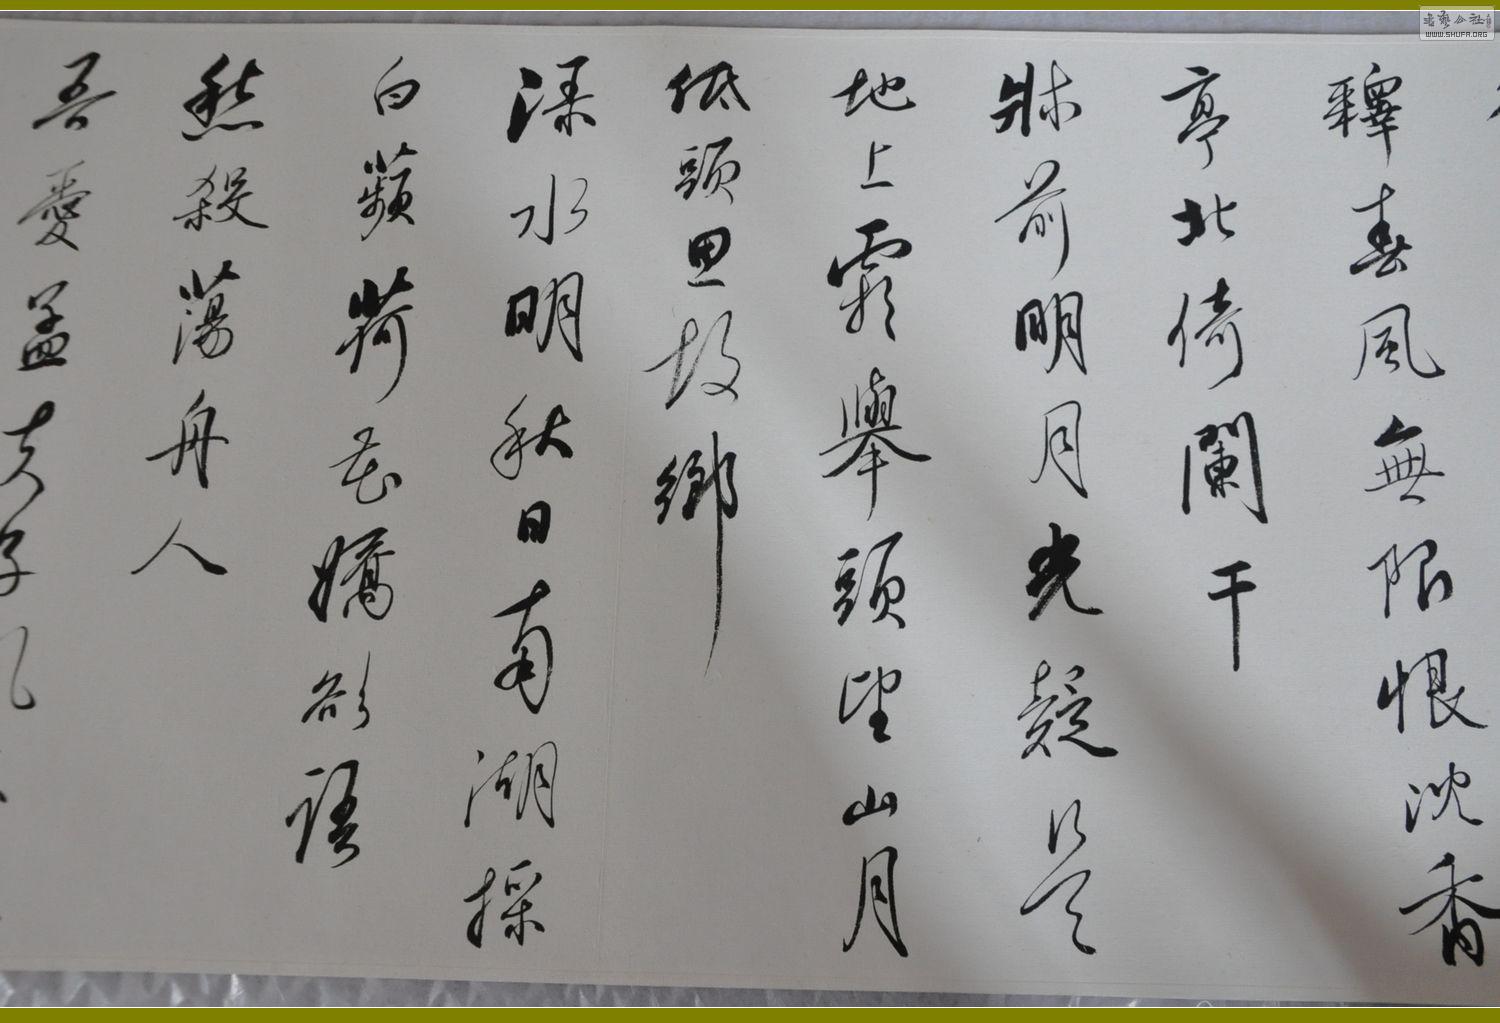 釋春風無限恨沈香
亭北倚闌干
牀前明月光疑是
地上霜舉頭望山月
低頭思故鄉
淥水明秋日南湖採
白蘋荷花嬌欲語
愁殺蕩舟人
吾愛孟夫子風
WWW.SHUFA.ORG